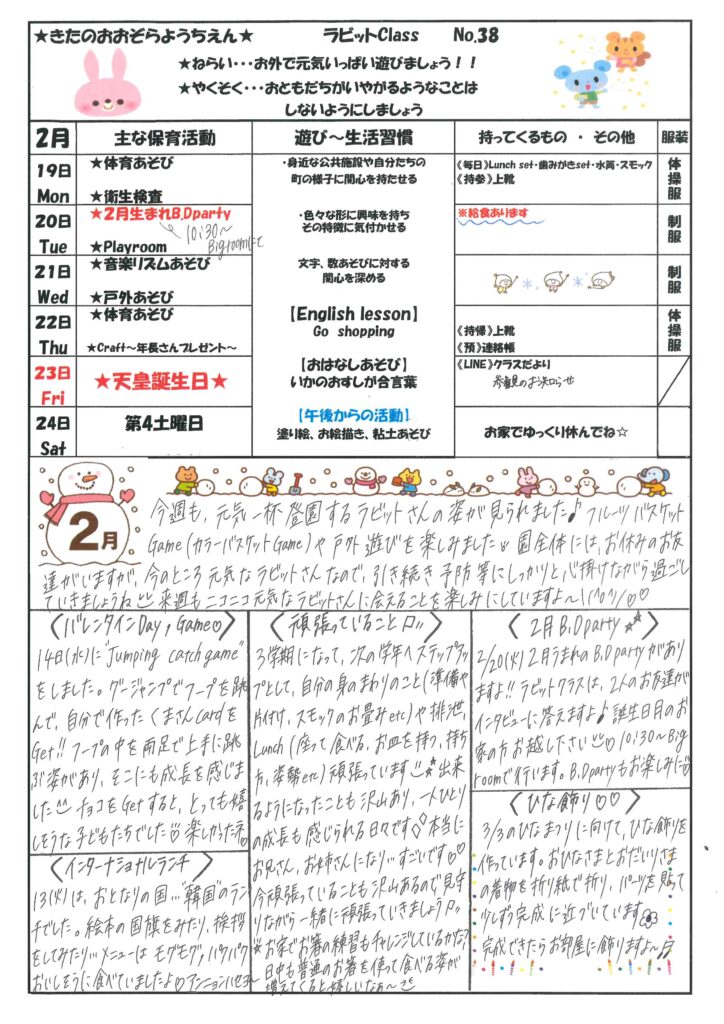 ★きたのおおぞらようちえん★ ラビットClass No.38
★ねらい・・・お外で元気いっぱい遊びましょう！！
★やくそく・・・おともだちがいやがるようなことは
しないようにしましょう
2月 主な保育活動 遊び～生活習慣 持ってくるもの ・ その他 服装
19日 Mon
★体育あそび
★衛生検査
・身近な公共施設や自分たちの
町の様子に関心を持たせる
《毎日》Lunch set・歯みがきset・水筒・スモック
《持参》上靴
体操服
20日 Tue
★2月生まれB.Dparty
10:30～
Big roomにて
★Playroom
・色々な形に興味を持ち
その特徴に気付かせる
※給食あります
制服
21日 Wed
★音楽リズムあそび
★戸外あそび
文字、数あそびに対する
関心を深める
制服
22日 Thu
★体育あそび
★Craft～年長さんプレゼント～
【English lesson】
Go shopping
《持帰》上靴
《預》連絡帳
体操服
23日 Fri
★天皇誕生日★
【おはなしあそび】
いかのおすしが合言葉
《LINE》クラスだより
参観のお知らせ
24日 Sat
第4土曜日
【午後からの活動】
塗り絵、お絵描き、粘土あそび
お家でゆっくり休んでね☆
2月
今週も、元気一杯登園するラビットさんの姿が見られました♪ フルーツバスケット
Game(カラーバスケットGame)や戸外遊びを楽しみました 園全体には、お休みのお友
達がいますが、今のところ元気なラビットさんなので、引き続き予防等にしっかりと心掛けながら過ごし
ていきましょうね 来週もニコニコ元気なラビットさんに会えることを楽しみにしていますよ～\(^o^)/♡♡
〈バレンタインDay,Game♡〉
14日(水)に"Jumping catch game"
をしました。グージャンプでフープを跳
んで、自分で作ったくまさんcardを
Get!! フープの中を両足で上手に跳
ぶ姿があり、そこにも成長を感じま
した チョコをGetすると、とっても嬉
しそうな子どもたちでした 楽しかったネ
〈インターナショナルランチ〉
13(火)は、おとなりの国…"韓国"のラン
チでした。絵本の国旗をみたり、挨拶
をしてみたり…メニューはモグモグ、パクパク
おいしそうに食べていましたよ♡アンニョンハセヨ～
〈頑張っていること〉
3学期になって、次の学年へステップアッ
プとして、自分の身のまわりのこと(準備や
片付け、スモックのお畳みetc)や排泄、
Lunch(座って食べる、お皿を持つ、持ち
方、姿勢etc)頑張っています 出来
るようになったことも沢山あり、一人ひとり
の成長も感じられる日々です 本当に
お兄さん、お姉さんになり…すごいです♡♡
今頑張っていることも沢山あるので見守
りながら一緒に頑張っていきましょう
★お家でお箸の練習もチャレンジしているかな?
日中も普通のお箸を使って食べる姿が
増えてくると嬉しいなぁ～
〈2月B.Dparty〉
2/20(火)2月うまれのB.Dpartyがあり
ますよ!! ラビットクラスは、2人のお友達が
インタビューに答えますよ♪ 誕生日月のお
家の方お越し下さい 10:30～Big
roomで行います。B.Dpartyもお楽しみに♡
〈ひな飾り♡♡〉
3/3のひなまつりに向けて、ひな飾りを
作っています。おひなさまとおだいりさま
の着物を折り紙で折り、パーツを貼って
少しずつ完成に近づいています
完成できたらお部屋に飾りますよ～♫